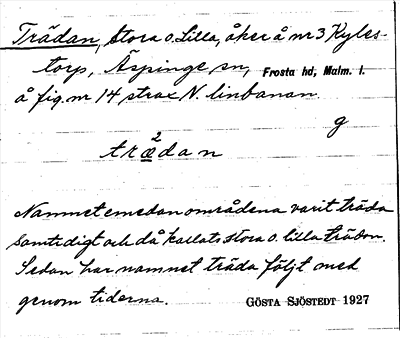 Trädan, Stora o. Lilla, åker å nr 3 Kyles-
torp, Äspinge sn, Frosta hd, Malm. l.
å fig. nr 14 strax N. linbanan.
g
2
trädan
Namnet emedan områdena varit träda
samtidigt och då kallats stora o. lilla trädan.
Sedan har namnet träda följt med
genom tiderna. GÖSTA SJÖSTEDT 1927